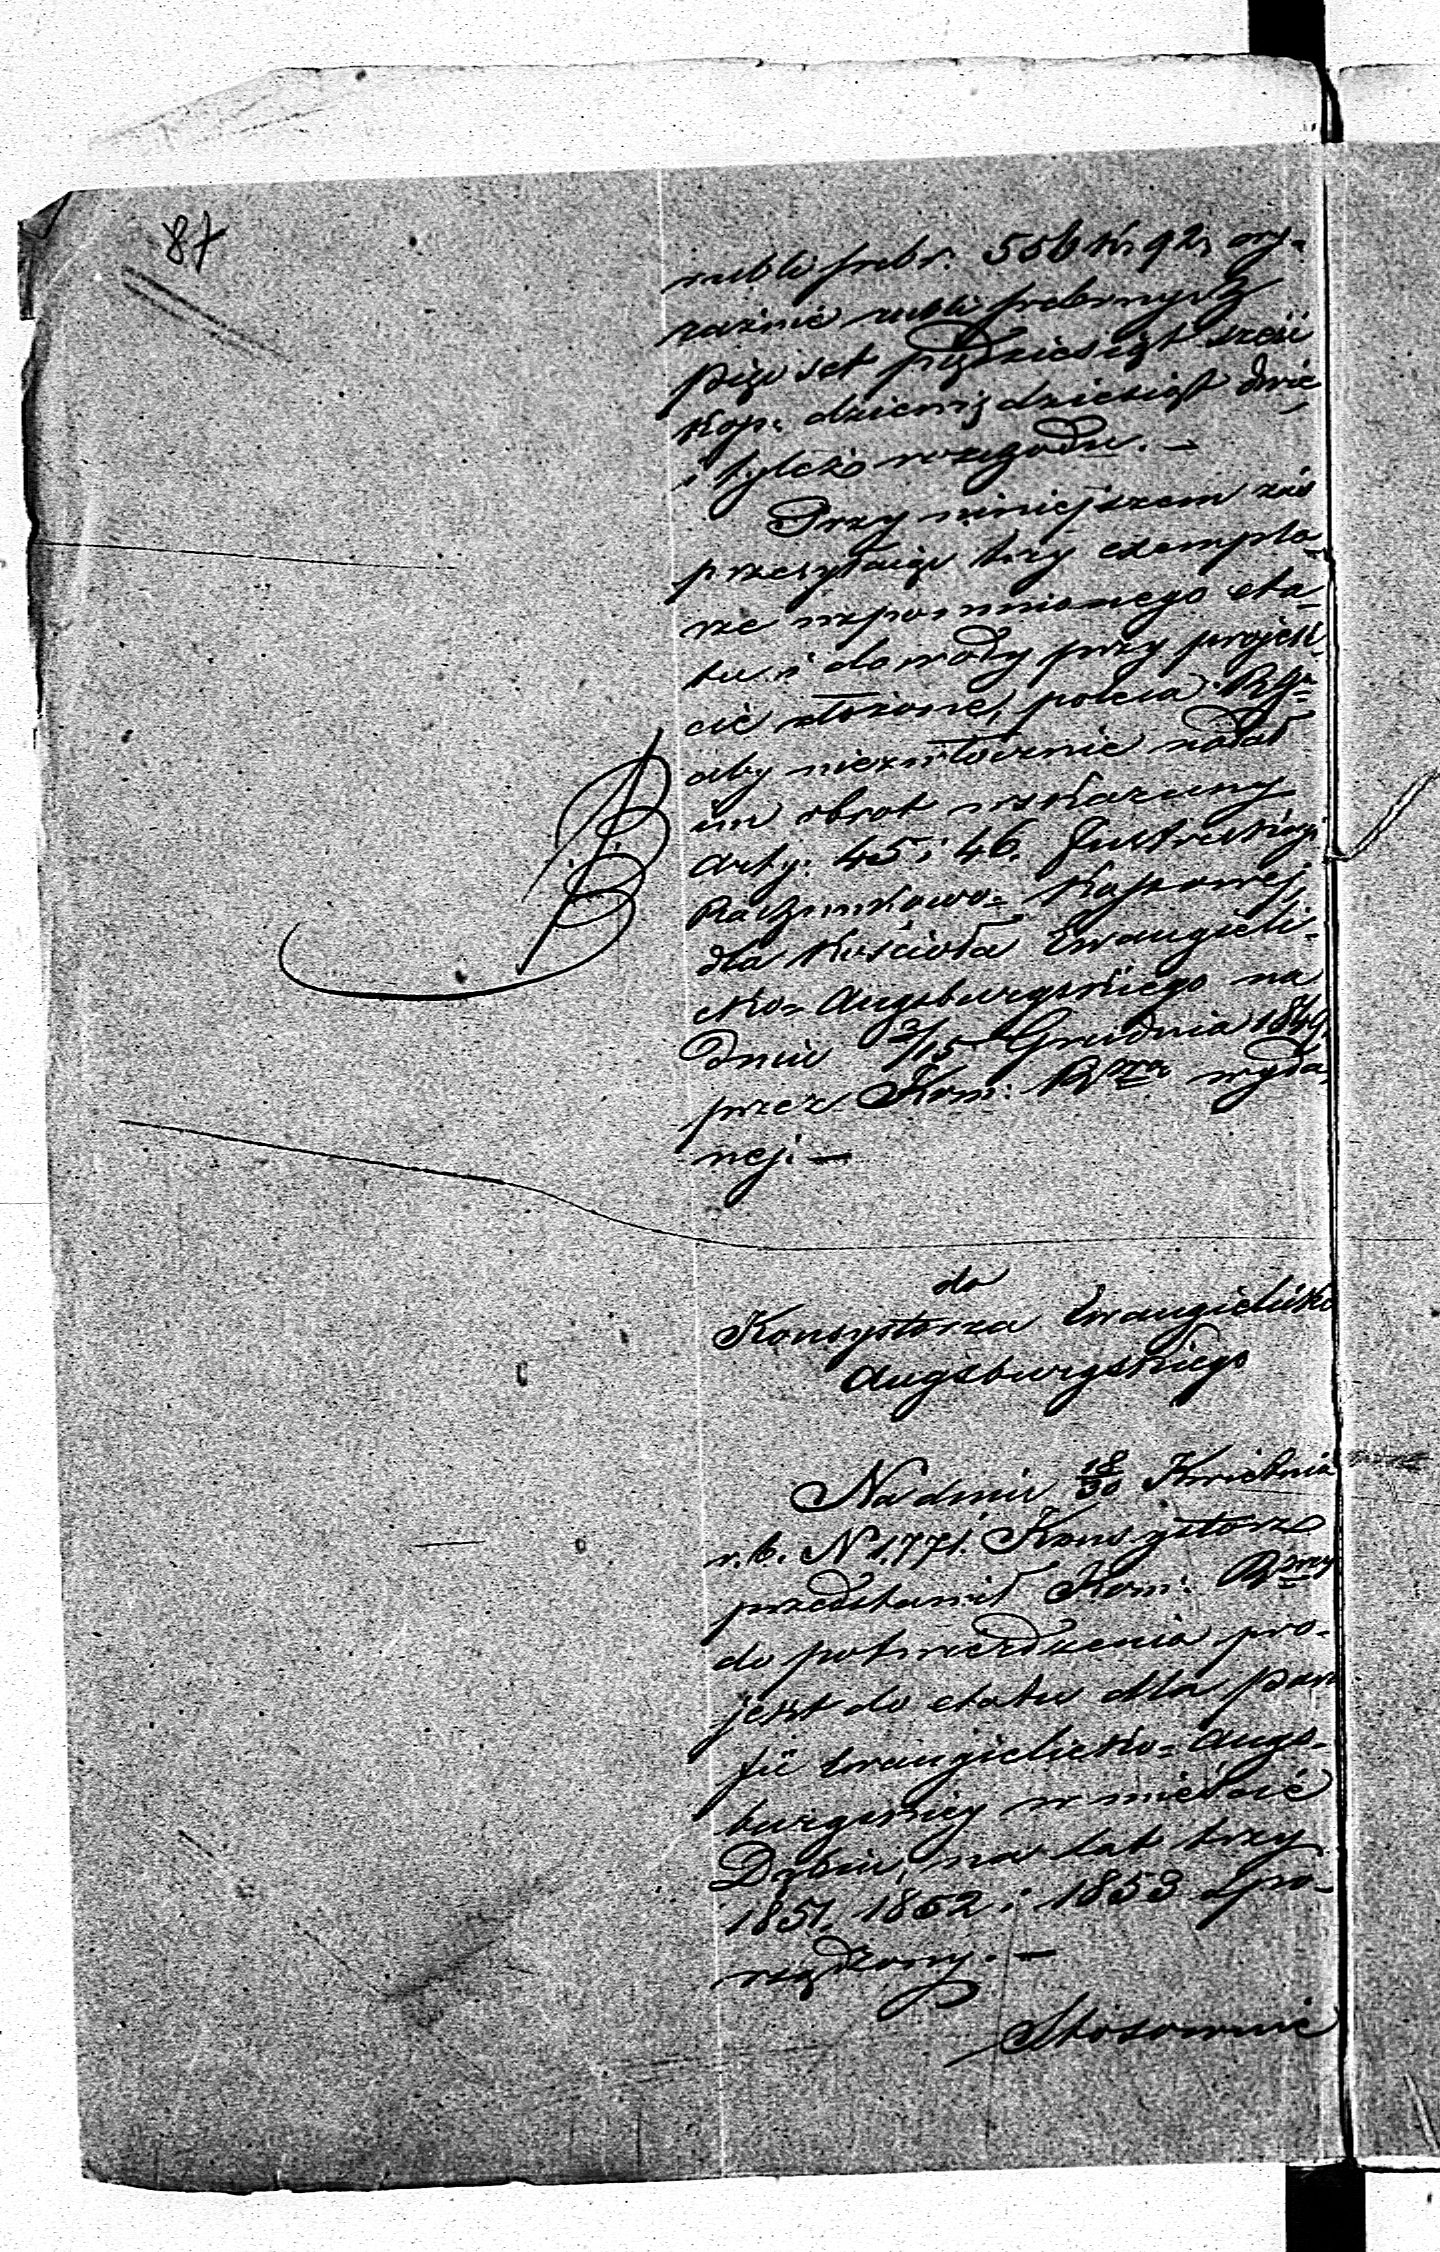 87
rubli srebr. 556 k. 92, wy-
raźnie rubli srebrnych
pięćset pięćdziesiąt sześć
kop: dziewięćdziesiąt dwie
i tyleż rozchodu. —
Przy niniejszem zaś
przesyłając trzy exempla-
rze wspomnionego eta-
tu i dowody przy projek-
cie złożone, poleca
aby niezwłocznie nadał
im obrot wskazany
Arty: 45 i 46. Instrukcyi
Rachunkowo-Kassowej
dla Kościoła Ewangieli-
cko-Augsburgskiego na
dniu 3/15 Grudnia 1849
przez Kom: Rząd wyda-
nej. —
do
Konsystorza Ewangielicko
Augsburgskiego
Na dniu 18/30 Kwietnia
r. b. N 1771. Konsystorz
przedstawił Kom: Rząy
do potwierdzenia pro-
jekt do etatu dla para
fii Ewangielicko-Augs-
burgskiey w mieście
Dąbiu, na lat trzy
1851, 1852 i 1853 spo-
rządzony. —
Stosownie